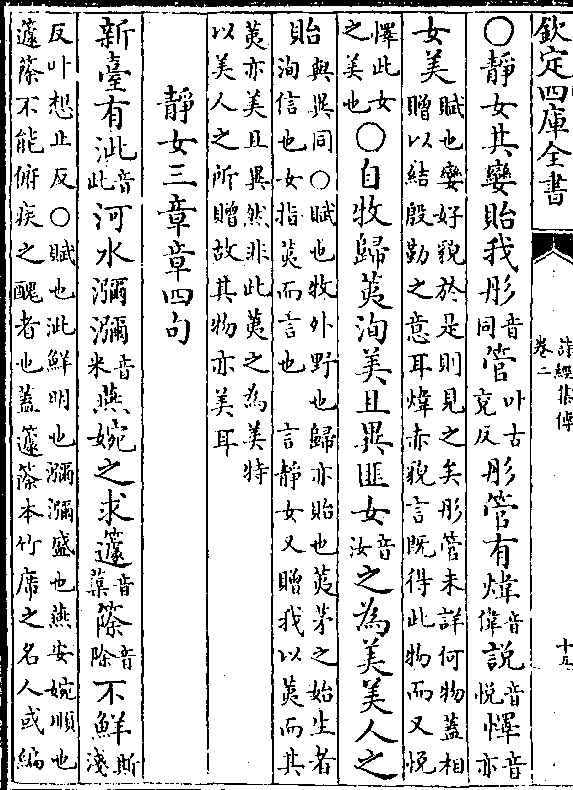 欽定四庫全書
詩經集傳
卷二
○靜女其孌貽我彤音同管叶古兖反彤管有煒音偉說音悅懌音亦
女美賦也孌好貌於是則見之矣彤管未詳何物蓋相
贈以結殷勤之意耳煒赤貌言既得此物而又悅
懌此女之美也○自牧歸荑洵美且異匪女音汝之為美美人之
貽與異同○賦也牧外野也歸亦貽也荑茅之始生者
洵信也女指荑而言也 言靜女又贈我以荑而其
荑亦美且異然非此荑之為美特
以美人之所贈故其物亦美耳
靜女三章章四句
新臺有泚音此河水瀰瀰音米燕婉之求籧音蕖篨音除不鮮斯淺
反叶想止反○賦也泚鮮明也瀰瀰盛也燕安婉順也
籧篨不能俯疾之醜者也蓋籧篨本竹席之名人或編